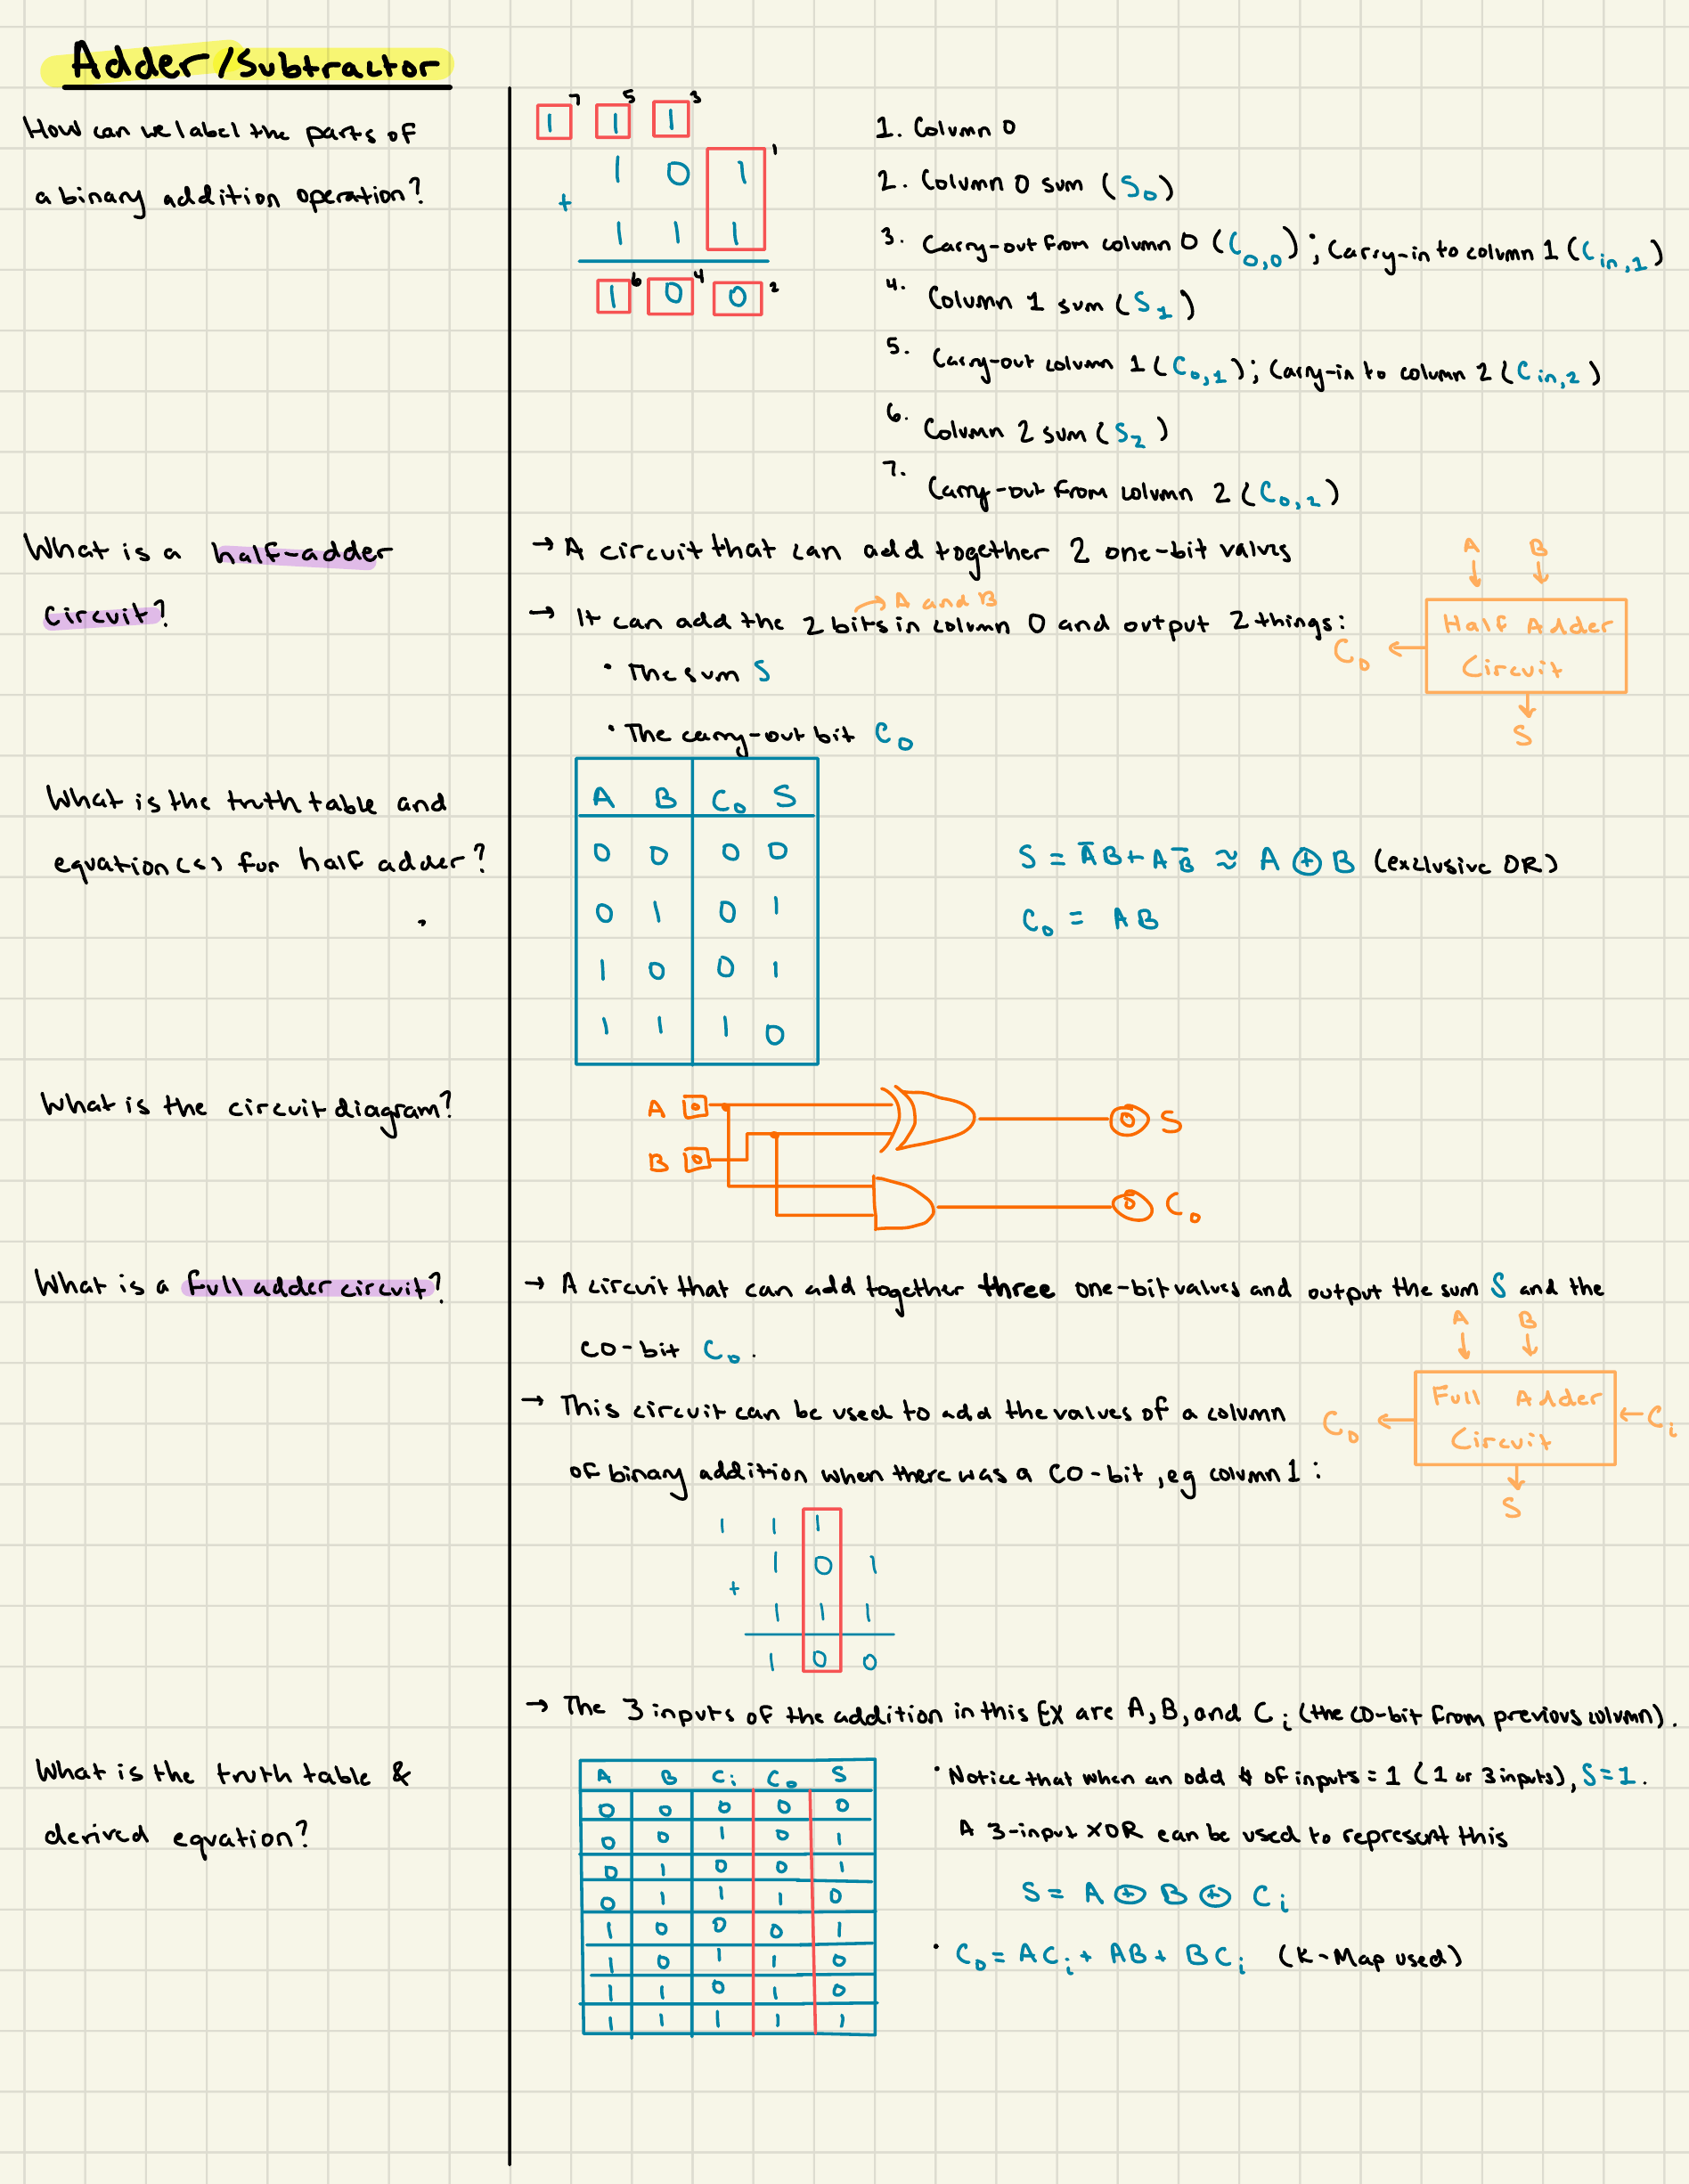 Adder/Subtractor
How can we label the parts of
a binary addition operation?
1 7 1 5 1 3
1 0 1 1
+
1 1 1
1 6 0 4 0 2
1. Column 0
2. Column 0 sum (S0)
3. Carry-out from column 0 (C0,0); Carry-in to column 1 (Cin,1)
4. Column 1 sum (S1)
5. Carry-out column 1 (C0,1); Carry-in to column 2 (Cin,2)
6. Column 2 sum (S2)
7. Carry-out from column 2 (C0,2)
What is a half-adder
circuit?
→ A circuit that can add together 2 one-bit values
→ A and B
→ It can add the 2 bits in column 0 and output 2 things:
• The sum S
• The carry-out bit C0
A B
Half Adder
Circuit
C0 ←
S
What is the truth table and
equation(s) for half adder?
A B C0 S
0 0 0 0
0 1 0 1
1 0 0 1
1 1 1 0
S = A̅B + AB̅ ≈ A ⊕ B (exclusive OR)
C0 = AB
What is the circuit diagram?
A 0
B 0
0 S
0 C0
What is a full adder circuit?
→ A circuit that can add together three one-bit values and output the sum S and the
CO-bit C0.
→ This circuit can be used to add the values of a column
of binary addition when there was a CO-bit, eg column 1:
A B
Full Adder
Circuit
C0 ← ← Ci
S
1 1 1
1 0 1
+
1 1 1
1 0 0
→ The 3 inputs of the addition in this EX are A, B, and Ci (the CO-bit from previous column).
What is the truth table &
derived equation?
A B Ci C0 S
0 0 0 0 0
0 0 1 0 1
0 1 0 0 1
0 1 1 1 0
1 0 0 0 1
1 0 1 1 0
1 1 0 1 0
1 1 1 1 1
• Notice that when an odd # of inputs = 1 (1 or 3 inputs), S=1.
A 3-input XOR can be used to represent this
S = A ⊕ B ⊕ Ci
• C0 = ACi + AB + BCi (K-Map used)